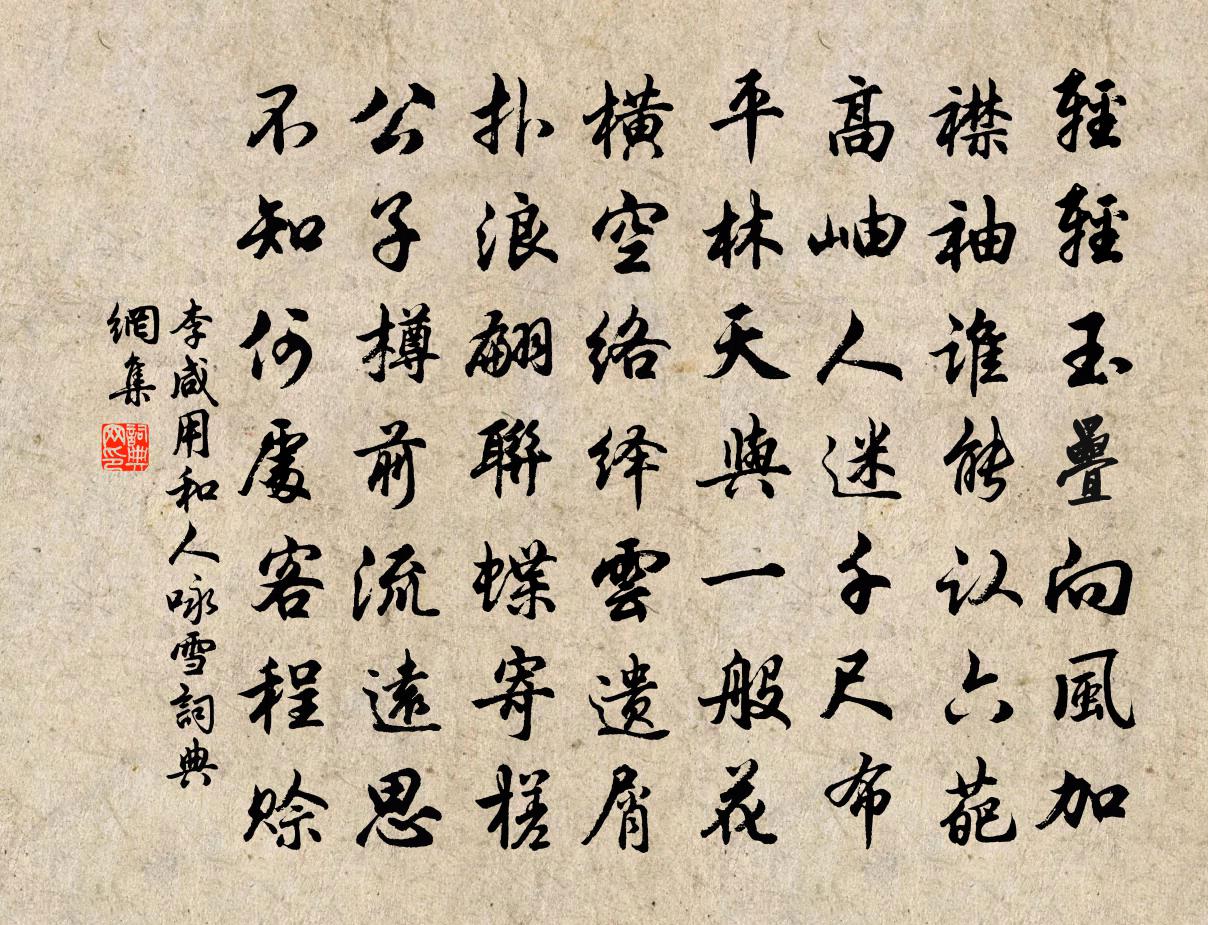 輕輕玉疊向風加
襟袖誰能認六葩
高岫人迷千尺布
平林天與一般花
橫空絡绎雲遺屑
扑浪翩聯蝶寄槎
公子樽前流遠思
不知何處客程賒
李咸用和人咏雪詞典
網集
詞典
网印